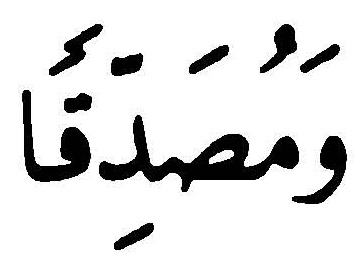 وَمُصَدِّقًا